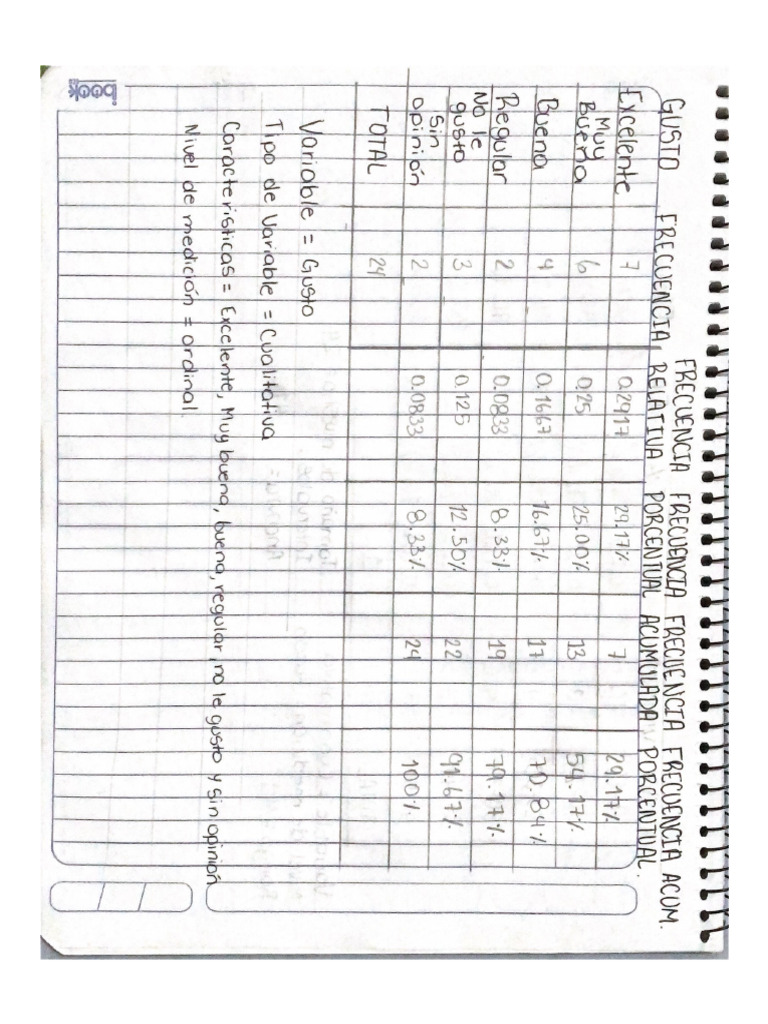 FRECUENCIA FRECUENCIA FRECUENCIA FRECUENCIA ACUM.
GUSTO FRECUENCIA RELATIVA PORCENTUAL ACUMULADA PORCENTUAL.
Excelente 7 0.2917 29.17% 7 29.17%
Muy Buena 6 0.25 25.00% 13 54.17%
Buena 4 0.1667 16.67% 17 70.84%
Regular 2 0.0833 8.33% 19 79.17%
No le gusto 3 0.125 12.50% 22 91.67%
sin opinión 2 0.0833 8.33% 24 100%
TOTAL 24
Variable = Gusto
Tipo de Variable = Cualitativa
Características = Excelente, Muy bueno, buena, regular, no le gusto y sin opinión
Nivel de medición = ordinal.